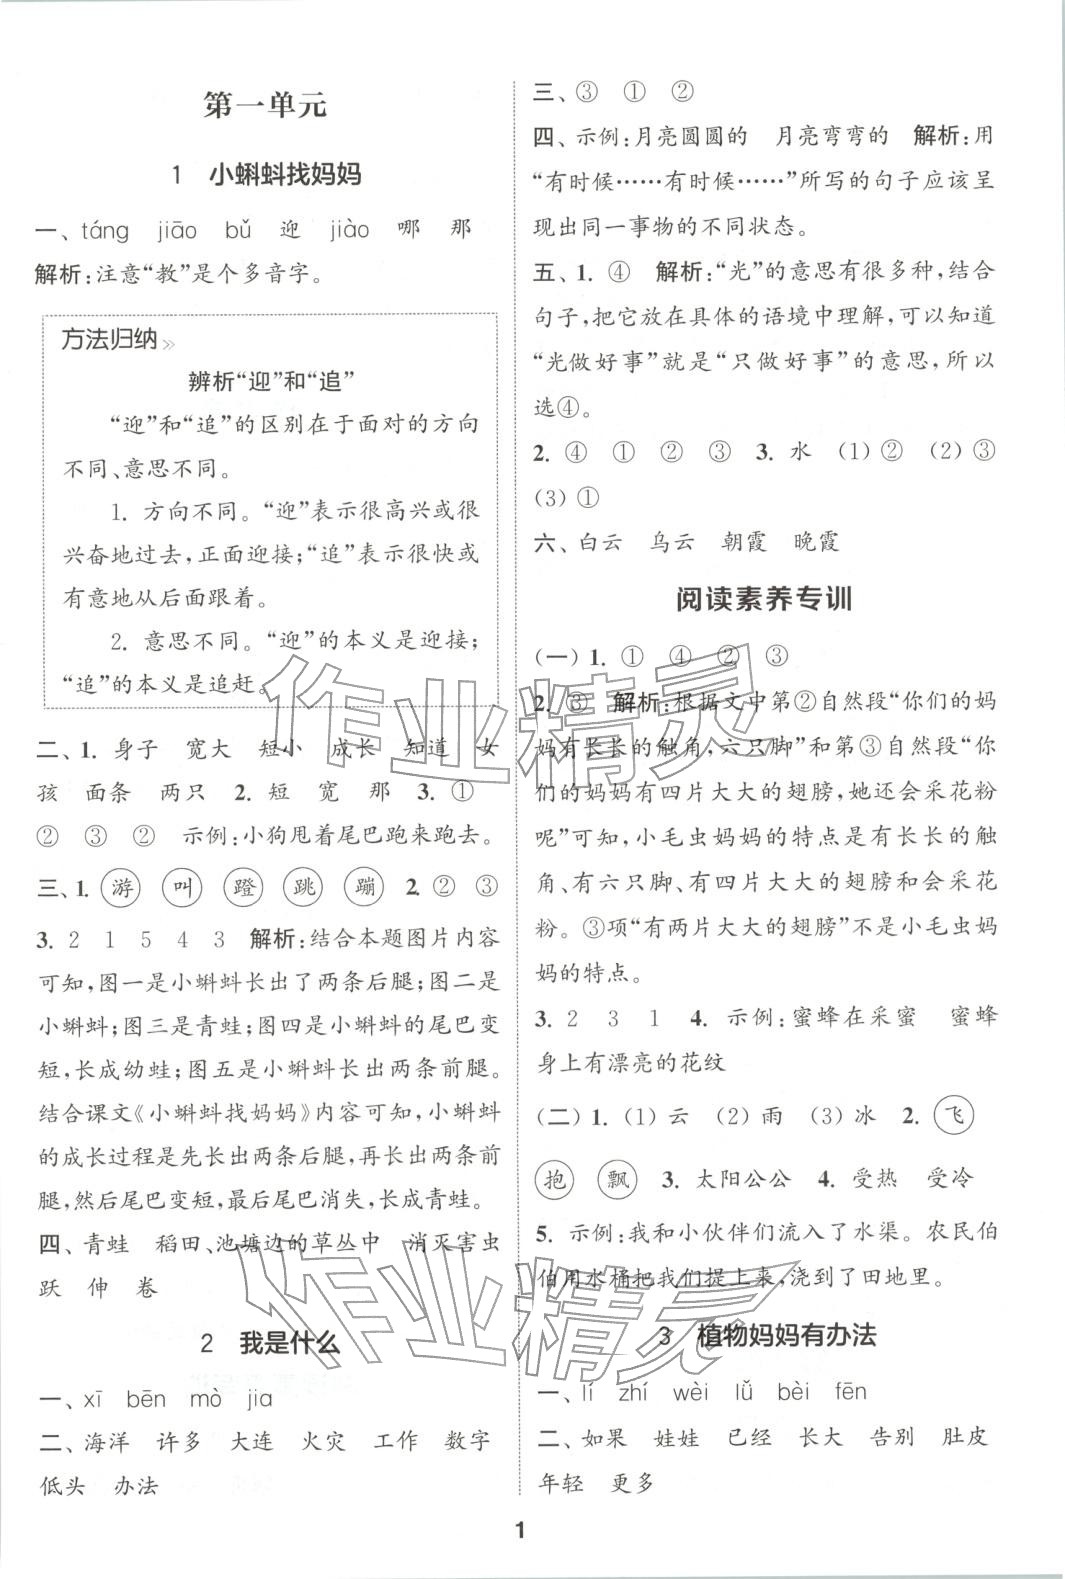 第一单元
1 小蝌蚪找妈妈
一、táng jiāo bǔ 迎 jiào 哪 那
解析:注意“教”是个多音字。
方法归纳»
辨析“迎”和“追”
“迎”和“追”的区别在于面对的方向
不同、意思不同。
1. 方向不同。“迎”表示很高兴或很
兴奋地过去,正面迎接;“追”表示很快或
有意地从后面跟着。
2. 意思不同。“迎”的本义是迎接;
“追”的本义是追赶。
二、1. 身子 宽大 短小 成长 知道 女
孩 面条 两只 2. 短 宽 那 3. ①
② ③ ② 示例:小狗甩着尾巴跑来跑去。
三、1. 游 叫 蹬 跳 蹦 2. ② ③
3. 2 1 5 4 3 解析:结合本题图片内容
可知,图一是小蝌蚪长出了两条后腿;图二是
小蝌蚪;图三是青蛙;图四是小蝌蚪的尾巴变
短,长成幼蛙;图五是小蝌蚪长出两条前腿。
结合课文《小蝌蚪找妈妈》内容可知,小蝌蚪
的成长过程是先长出两条后腿,再长出两条前
腿,然后尾巴变短,最后尾巴消失,长成青蛙。
四、青蛙 稻田、池塘边的草丛中 消灭害虫
跃 伸 卷
2 我是什么
一、xī bēn mò jia
二、海洋 许多 大连 火灾 工作 数字
低头 办法
三、③ ① ②
四、示例:月亮圆圆的 月亮弯弯的 解析:用
“有时候……有时候……”所写的句子应该呈
现出同一事物的不同状态。
五、1. ④ 解析:“光”的意思有很多种,结合
句子,把它放在具体的语境中理解,可以知道
“光做好事”就是“只做好事”的意思,所以
选④。
2. ④ ① ② ③ 3. 水 (1)② (2)③
(3)①
六、白云 乌云 朝霞 晚霞
阅读素养专训
(一)1. ① ④ ② ③
2. ③ 解析:根据文中第②自然段“你们的妈
妈有长长的触角,六只脚”和第③自然段“你
们的妈妈有四片大大的翅膀,她还会采花粉
呢”可知,小毛虫妈妈的特点是有长长的触
角、有六只脚、有四片大大的翅膀和会采花
粉。③项“有两片大大的翅膀”不是小毛虫妈
妈的特点。
3. 2 3 1 4. 示例:蜜蜂在采蜜 蜜蜂
身上有漂亮的花纹
(二)1. (1)云 (2)雨 (3)冰 2. 飞
抱 飘 3. 太阳公公 4. 受热 受冷
5. 示例:我和小伙伴们流入了水渠。农民伯
伯用水桶把我们提上来,浇到了田地里。
3 植物妈妈有办法
一、lí zhí wèi lǔ bèi fēn
二、如果 娃娃 已经 长大 告别 肚皮
年轻 更多
1
作业精灵
作业精灵